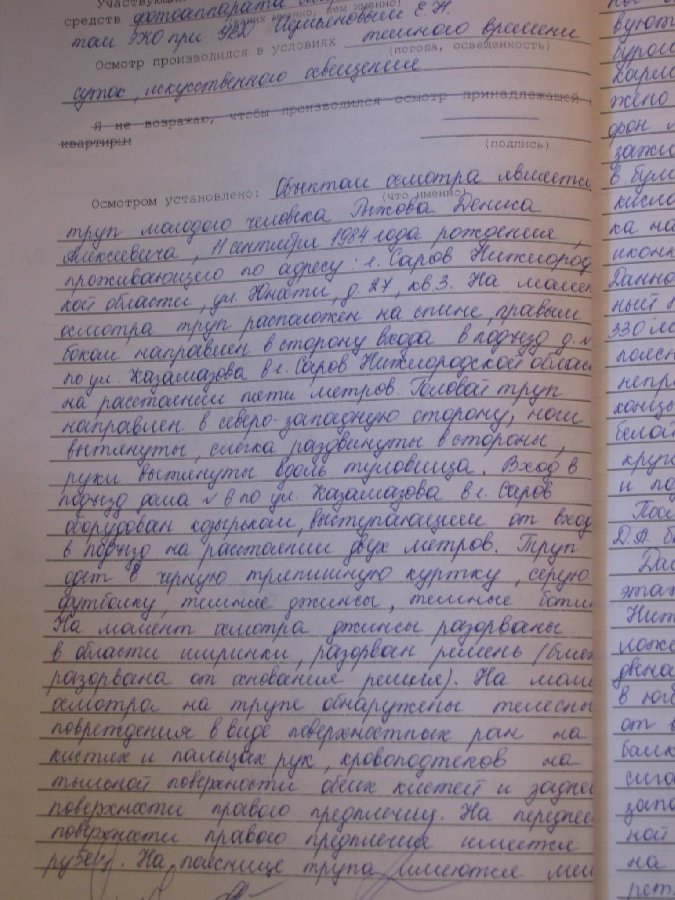 Участвующим
средств фотоаппарата
(каких именно, кем именно)
том ЭКО при УВД Е.Н.
Осмотр производился в условиях темного времени
(погода, освещенность)
суток, искусственного освещения
Я не возражаю, чтобы производился осмотр принадлежащей
квартиры:
(подпись)
Осмотром установлено: Объектом осмотра является
(что именно)
труп молодого человека Рыжова Дениса
Алексеевича, 11 сентября 1984 года рождения,
проживающего по адресу: г. Саров Нижегород
кой области, ул. д. 27, кв. 3. На момен
осмотра труп расположен на спине, правым
боком направлен в сторону входа в подъезд д. №
по ул. Казамазова в г. Саров Нижегородской облас
на расстоянии пяти метров. Головой труп
направлен в северо-западную сторону, ноги
вытянуты, слегка раздвинуты в стороны,
руки вытянуты вдоль туловища. Вход в
подъезд дома № 6 по ул. Казамазова в г. Саров
оборудован козырьком, выступающим от вход
в подъезд на расстоянии двух метров. Труп
одет в черную тряпишную куртку, серую
футболку, темные джинсы, темные боти
На момент осмотра джинсы разорваны
в области ширинки, разорван ремень
разорвана от основания ремня). На мом
осмотра на трупе обнаружены телесны
повреждения в виде поверхностных ран на
кистях и пальцах рук, кровоподтеков на
тыльной поверхности обеих кистей и задне
поверхности правого предплечия. На передне
поверхности правого предплечия имеется
рубец. На пояснице трупа имеются
вуют
буро
карма
жено
фон
зажи
В
кисло
ка на
иконк
Данно
ный
330
поясн
непр
концы
белой
круг
и по
Посл
Д.А. б
Дал
этаж
Ниж
ложе
двена
в юго
от в
балк
сига
запа
ной
на
рет